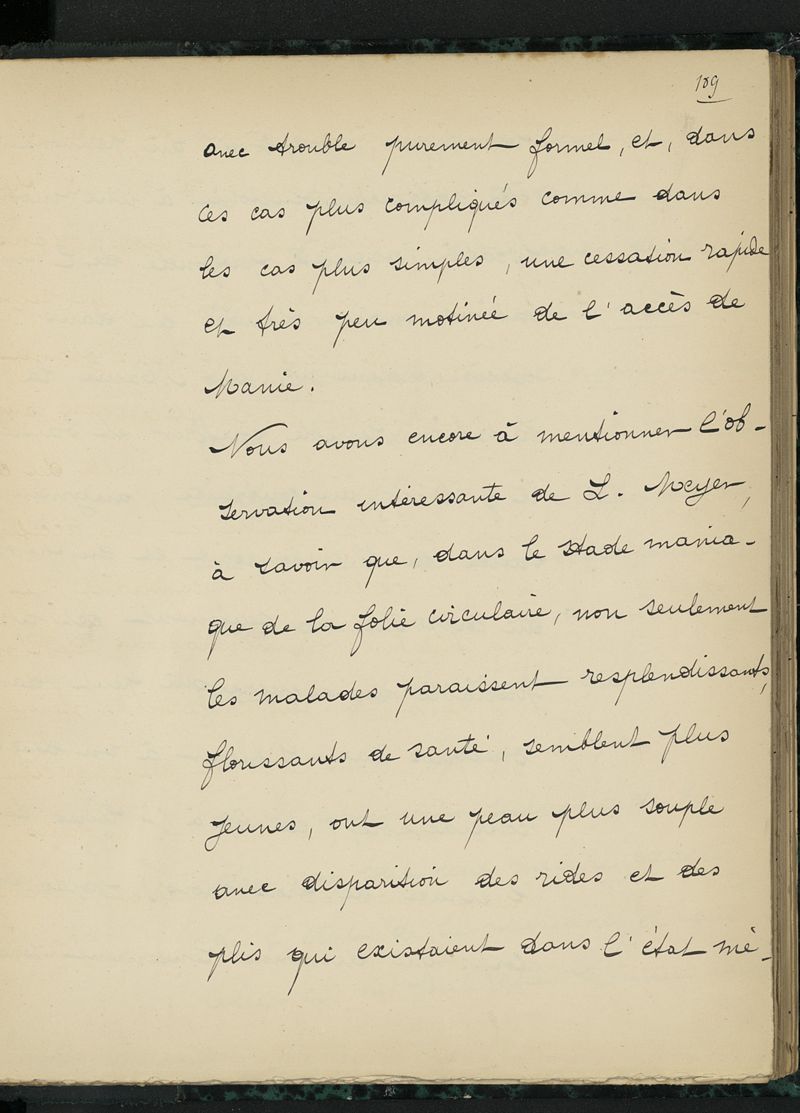 189
avec trouble purement formel, et, dans
ces cas plus compliqués comme dans
les cas plus simples, une cessation rapide
et très peu motivée de l'accès de
Manie.
Nous avons encore à mentionner l'ob-
servation intéressante de L. Meyer,
à savoir que, dans le stade mania-
que de la folie circulaire, non seulement
les malades paraissent resplendissants,
florissants de santé, semblent plus
jeunes, ont une peau plus souple
avec disparition des rides et des
plis qui existaient dans l'état mé-